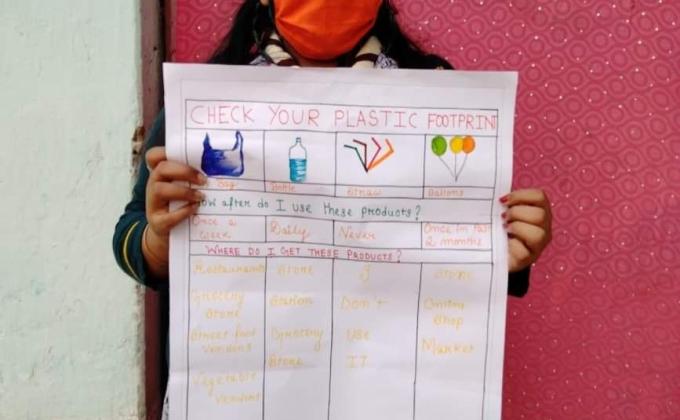 CHECK YOUR PLASTIC FOOTPRINT
bag Bottle Straw Ballons
How after do I use these products?
Once a week
Daily
Never
Once in Past 2 months
WHERE DO I GET THESE PRODUCTS?
Restaurants Store I Store
Grocery Store
Station
Don't
Online Shop
Street food Vendors
Grocery Store
Use IT
Market
Vegetable Vendors